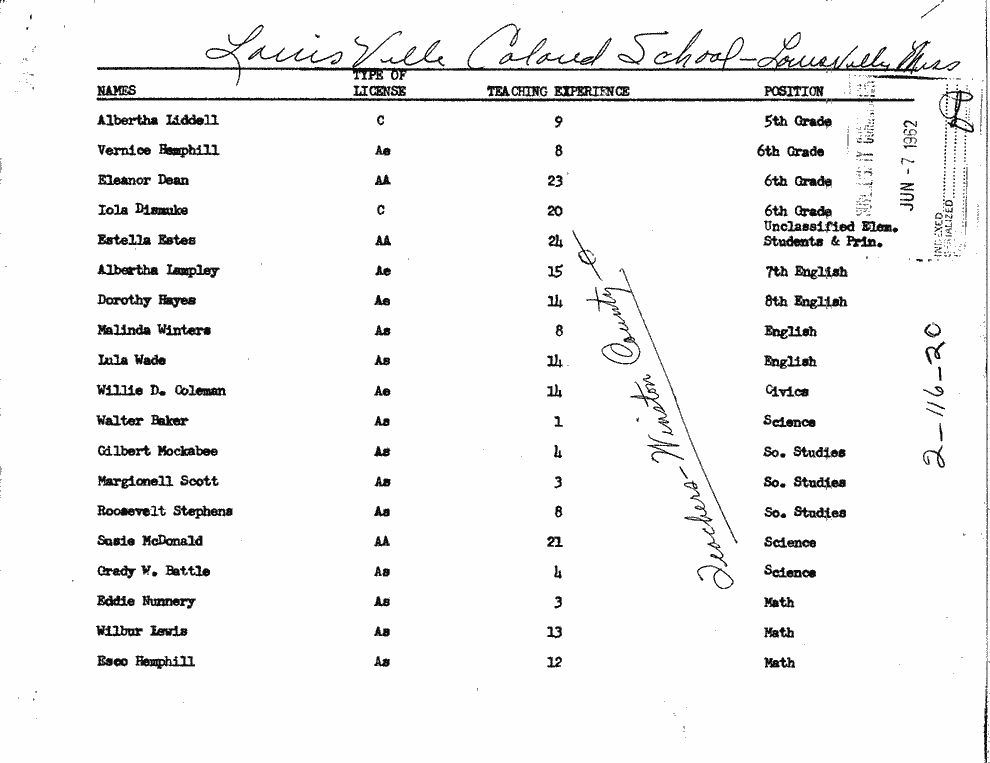 LouisVille Colored School - Louisville, Miss
NAMES TYPE OF LICENSE TEACHING EXPERIENCE POSITION
Albertha Liddell C 9 5th Grade
Vernice Hemphill Ae 8 6th Grade
Eleanor Dean AA 23 6th Grade
Iola Dismuke C 20 6th Grade
Estella Estes AA 24 Unclassified Elem. Students & Prin.
Albertha Lampley Ae 15 7th English
Dorothy Hayes Ae 14 8th English
Malinda Winters As 8 English
Lula Wade As 14 English
Willie D. Coleman Ae 14 Civics
Walter Baker As 1 Science
Gilbert Mockabee As 4 So. Studies
Margionell Scott As 3 So. Studies
Roosevelt Stephens As 8 So. Studies
Susie McDonald AA 21 Science
Grady W. Battle As 4 Science
Eddie Nunnery As 3 Math
Wilbur Lewis As 13 Math
Esco Hemphill As 12 Math
Teachers - Winston County -
JUN - 7 1962
INDEXED
SERIALIZED
2-116-20